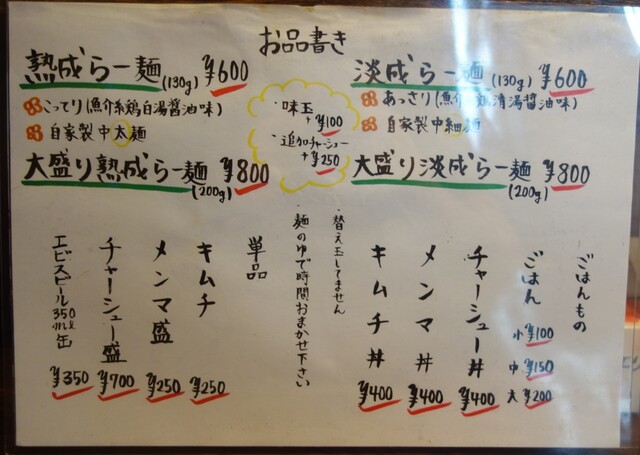 お品書き
熟成らー麺(130g) ¥600
こってり(魚介系鶏白湯醤油味)
自家製中太麺
大盛り熟成らー麺(200g) ¥800
味玉+¥100
追加チャーシュー+¥250
淡成らー麺(130g) ¥600
あっさり(魚介 清湯醤油味)
自家製中細麺
大盛り淡成らー麺(200g) ¥800
ごはんもの
ごはん
小 ¥100
中 ¥150
大 ¥200
チャーシュー丼 ¥400
メンマ丼 ¥400
キムチ丼 ¥400
・替え玉してません
・麺のゆで時間おまかせ下さい
単品
キムチ ¥250
メンマ盛 ¥250
チャーシュー盛 ¥700
エビスビール350ml缶 ¥350